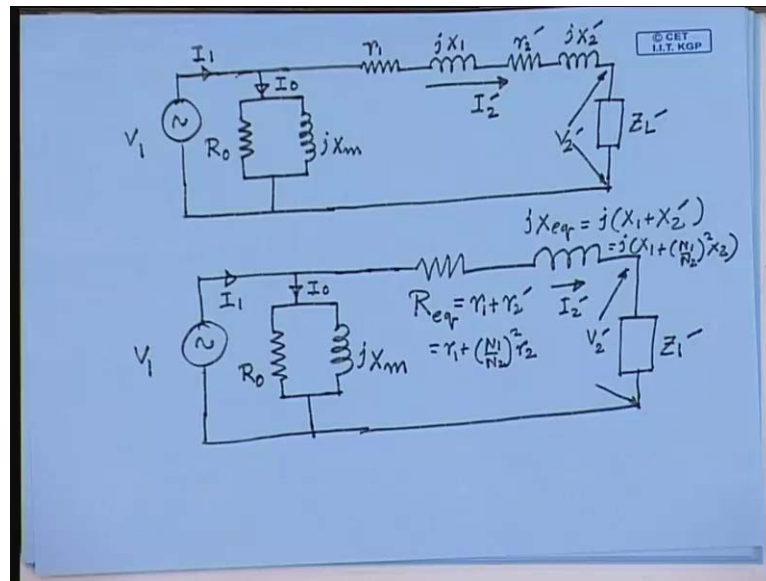 © CET
I.I.T. KGP
I₁
I₀
r₁
jx₁
r₂′
jx₂′
V₁
R₀
jXm
I₂′
V₂′
ZL′
jXeq = j(X₁+X₂′)
= j(X₁+(N₁/N₂)²X₂)
I₁
I₀
Req = r₁+r₂′
= r₁+(N₁/N₂)²r₂
I₂′
V₁
R₀
jXm
V₂′
Z₁′